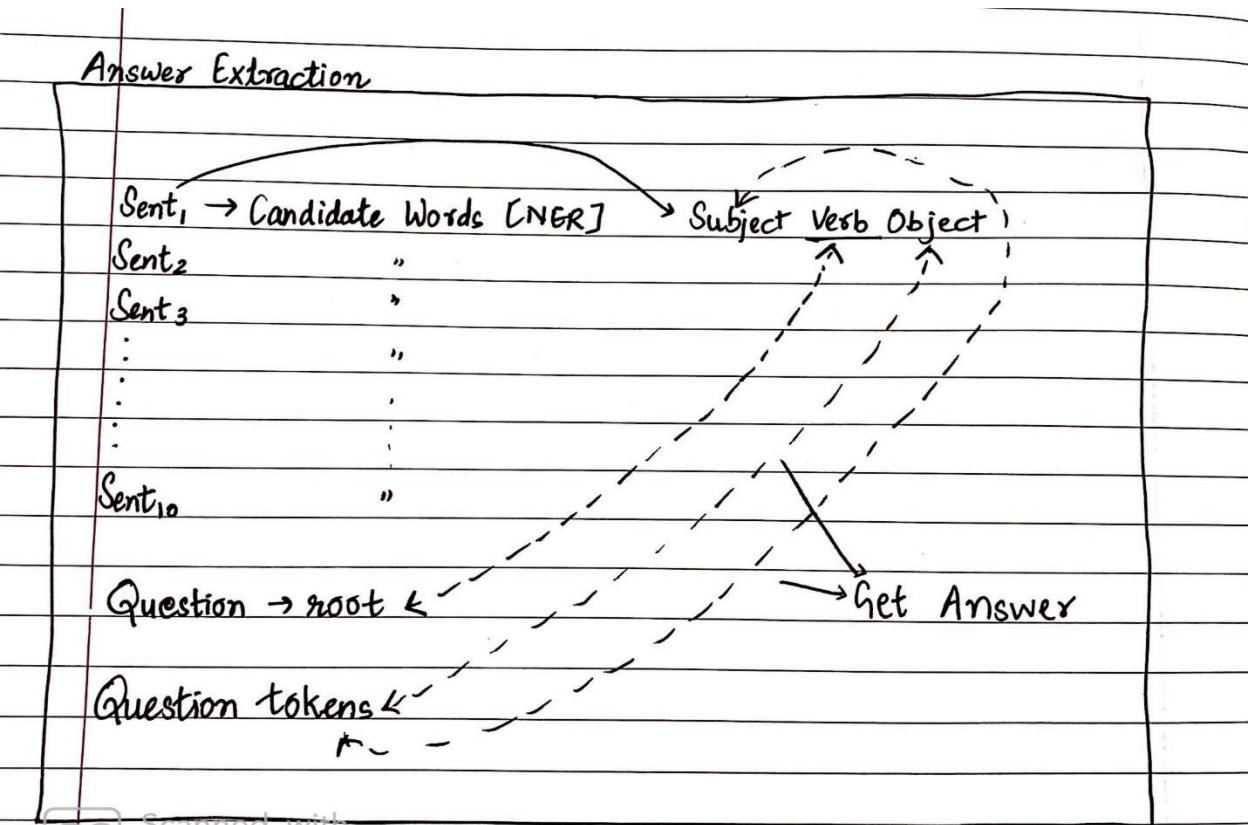 Answer Extraction
Sent1 → Candidate Words [NER] Subject Verb Object
Sent2 "
Sent3 "
"
Sent10 "
Question → root
Get Answer
Question tokens
Scanned with